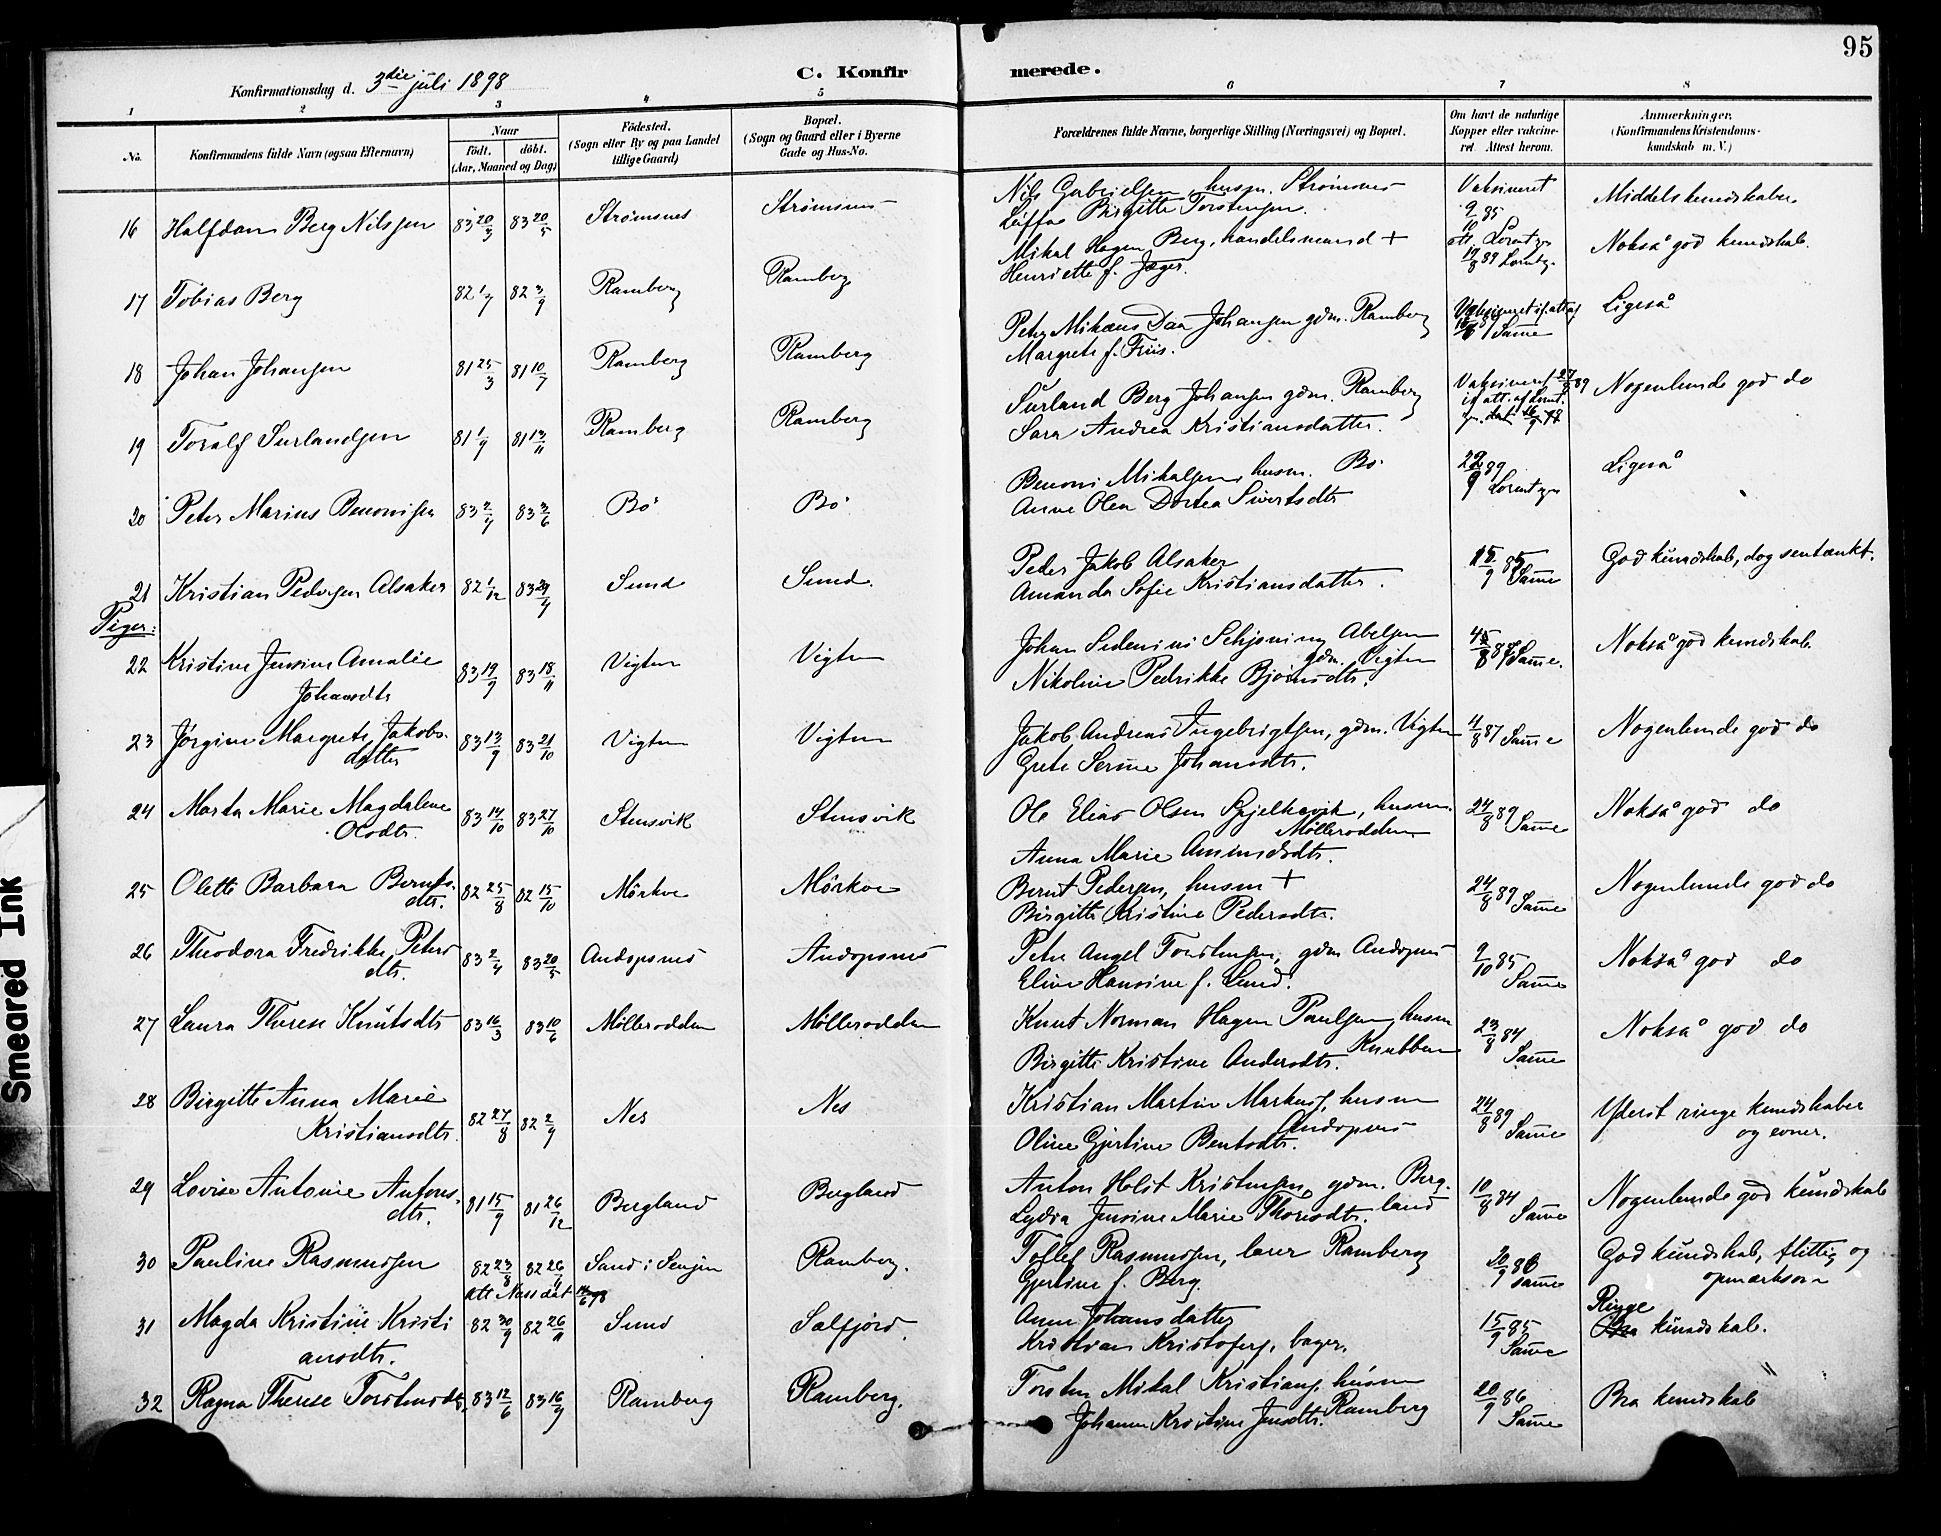 95
C. Konfirmerede.
Konfirmationsdag d. 3die juli 1898
1 2 3 4 5 6 7 8
No.
Konfirmandens fulde Navn (ogsaa Efternavn)
Naar
födt. döbt.
(Aar, Maaned og Dag)
Födested.
(Sogn eller By og paa Landet
tillige Gaard)
Bopæl.
(Sogn og Gaard eller i Byerne
Gade og Hus-No.
Forældrenes fulde Navne, borgerlige Stilling (Næringsvei) og Bopæl.
Om havt de naturlige
Kopper eller vakcine-
ret. Attest herom.
Anmærkninger.
(Konfirmandens Kristendoms-
kundskab m. V.)
16 Halfdan Berg Nilssen 83 20/3 83 20/5 Strømsnes Strømsnes
Nils Gabrielsen, husm. Strømsnes
Birgitte Torstensen.
Vaksineret
9/10 85
Middels kundskaber
17 Tobias Berg 82 82 3/9 Ramberg Ramberg
Mikal Hagen Berg, handelsmand +
Henriette f. Jæger.
19/8 89 Lorntz.
Nokså god kundskab.
18 Johan Johansen 81 25/3 81 10/7 Ramberg Ramberg
Peter Mikæus Daa Johansen gdm. Ramberg
Margrete f. Friis.
Same
Ligeså
19 Toralf Surlandsen 81 1/9 81 13/11 Ramberg Ramberg
Surland Berg Johansen gdm. Ramberg
Sara Andrea Kristiansdatter.
Vaksineret 27/8 89
if. att. af Lornt.
Nogenlunde god do
20 Peter Marius Benonisen 83 83 3/6 Bö Bö
Benoni Mikalsen, husm. Bö
Anne Olea Dortea Sivertsdtr
22/9 89
Lorntzen
Ligeså
21 Kristian Pedersen Alsaker 82 1/12 83 29/4 Sund Sund.
Peder Jakob Alsaker
Amanda Sofie Kristiansdatter.
15/9 85
Same
God kundskab, dog sentænkt.
Piger:
22 Kristine Jensine Amalie
Johansdtr
83 19/9 83 18/11 Vigten Vigten
Johan Sedenius Schjøning Abelsen
gdm. Vigten
Nikoline Pedrikke Bjørnsdtr.
Same.
Nokså god kundskab.
23 Jørgine Margrete Jakobs-
datter
83 13/9 83 21/10 Vigten Vigten
Jakob Andreas Ingebrigtsen, gdm. Vigten
Grete Serine Johansdtr.
4/8 87 Same
Nogenlunde god do
24 Marta Marie Magdalene
Olsdtr.
83 14/10 83 27/10 Stensvik Stensvik
Ole Elias Olsen Spjelkavik, husm.
Møllerodden
Anna Marie Amundsdtr.
24/8 89 Same
Nokså god do
25 Olette Barbara Bernts-
dtr.
82 25/8 82 15/10 Mörkve Mörkve
Bernt Pedersen, husm +
Birgitte Kristine Pedersdtr.
24/8 89 Same
Nogenlunde god do
26 Theodora Fredrikke Peters
dtr.
83 2/4 83 20/5 Andopsnes Andopsnes
Peter Angel Torstensen, gdm Andopsnes
Eline Hansine f. Lund.
9/10 85
Same
Nokså god do
27 Laura Therese Knutsdtr 83 16/3 83 10/6 Möllerodden Möllerodden
Knut Norman Hagen Paulsen, husm
Knubben
Birgitte Kristine Andersdtr.
23/8 84
Same
Nokså god do
28 Birgitte Anna Marie
Kristiansdtr.
82 27/8 82 2/9 Nes Nes
Kristian Martin Markus, husm
Andopsnes
Oline Gjertine Bentsdtr.
24/8 89
Same
Yderst ringe kundskaber
og evner.
29 Lovise Antonie Antons-
dtr.
81 15/9 81 26/12 Bergland Bergland
Anton Holst Kristensen, gdm. Berg-
land
Lydia Jensine Marie Thorisdtr.
10/8 84
Same
Nogenlunde god kundskab
30 Pauline Rasmussen 82 23/8 82 26 Sand i Senjen Ramberg.
att Næss dat
Tollef Rasmussen, lærer Ramberg
Gjertine f. Berg.
20/9 86
Same
God kundskab, flittig og
opmærksom
31 Magda Kristine Kristi
ansdtr.
82 30/9 82 26/11 Sund Solfjord.
Anne Johansdatter
Kristian Kristofers, bager.
15/9 85
Same
Ringe
Bra kundskab.
32 Ragna Therese Torstensdtr. 83 12/6 83 16/9 Ramberg Ramberg.
Torsten Mikal Kristians, husm
Ramberg
Johanne Kristine Jensdtr.
20/9 86
Same
Bra kundskab
Smeared Ink